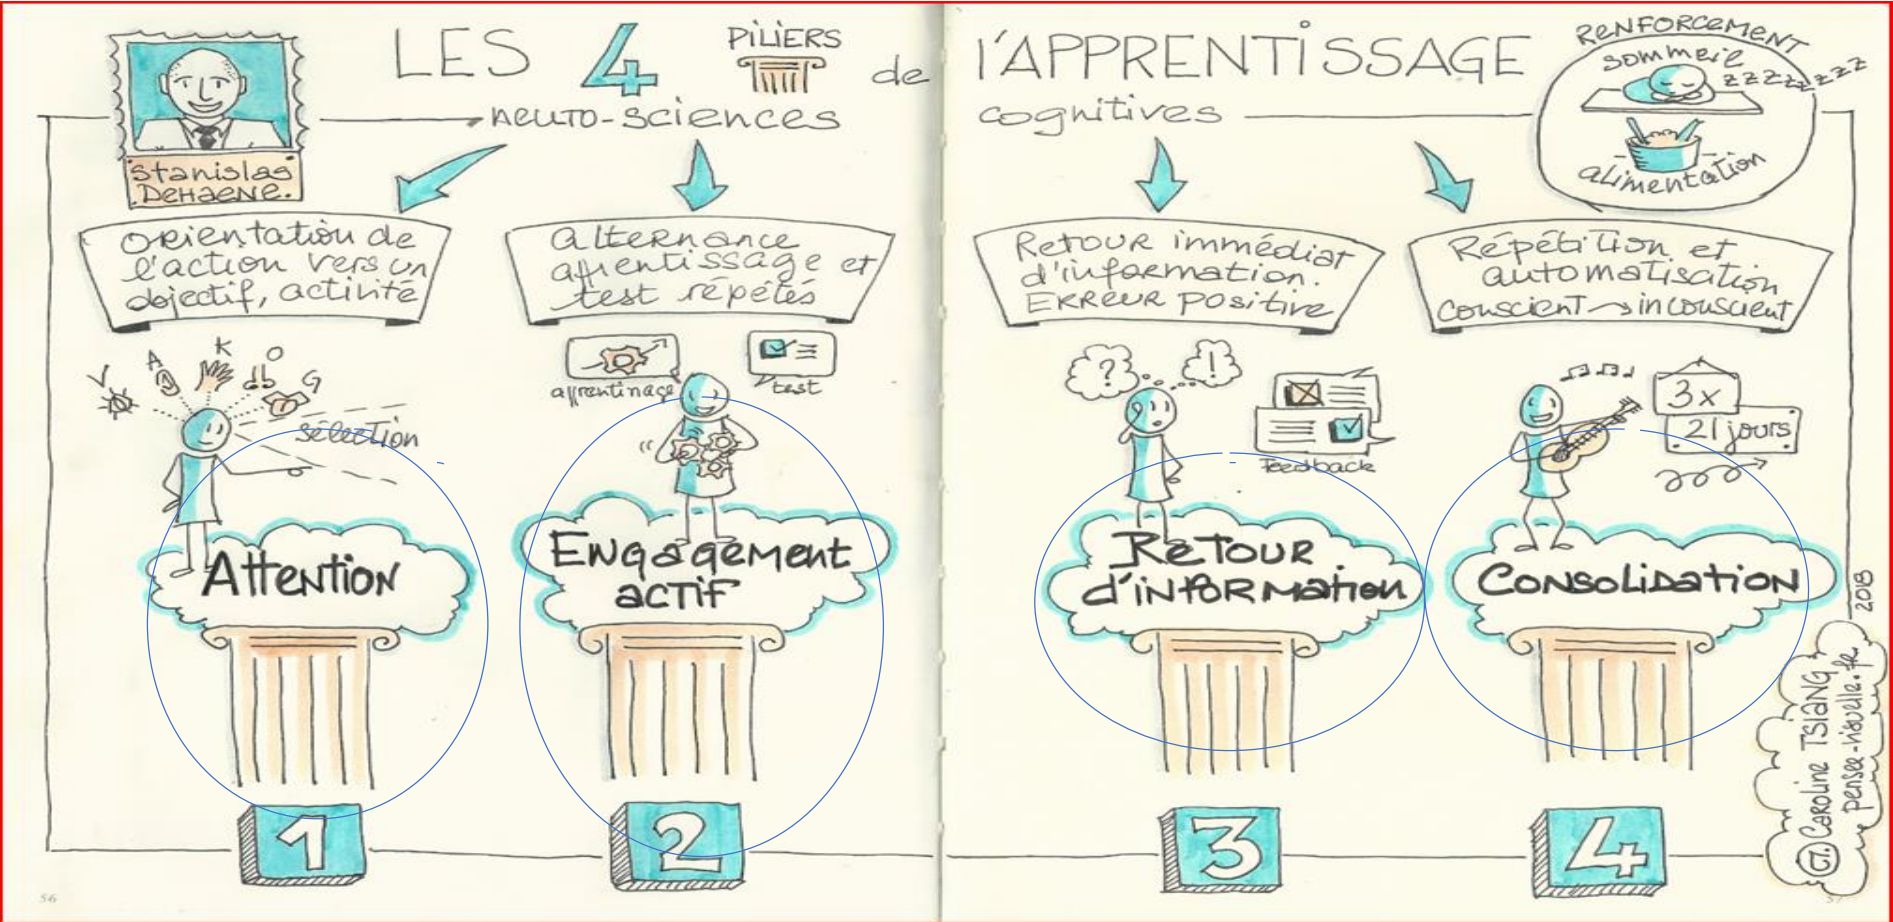 LES 4 PILIERS de l'APPRENTISSAGE
neuro-sciences cognitives
Stanislas
DEHAENE.
RENFORCEMENT
sommeil
zzzzzzzz
alimentation
Orientation de
l'action vers un
objectif, activité
Alternance
apprentissage et
test répétés
Retour immédiat
d'information.
ERREUR positive
Répétition et
automatisation
conscient → inconscient
V A K O G
sélection
apprentissage
test
?
!
Feedback
3x
21 jours
Attention
Engagement
actif
Retour
d'information
Consolidation
1
2
3
4
CT. Caroline TSIANG 2018
pensee-visuelle.fr
56